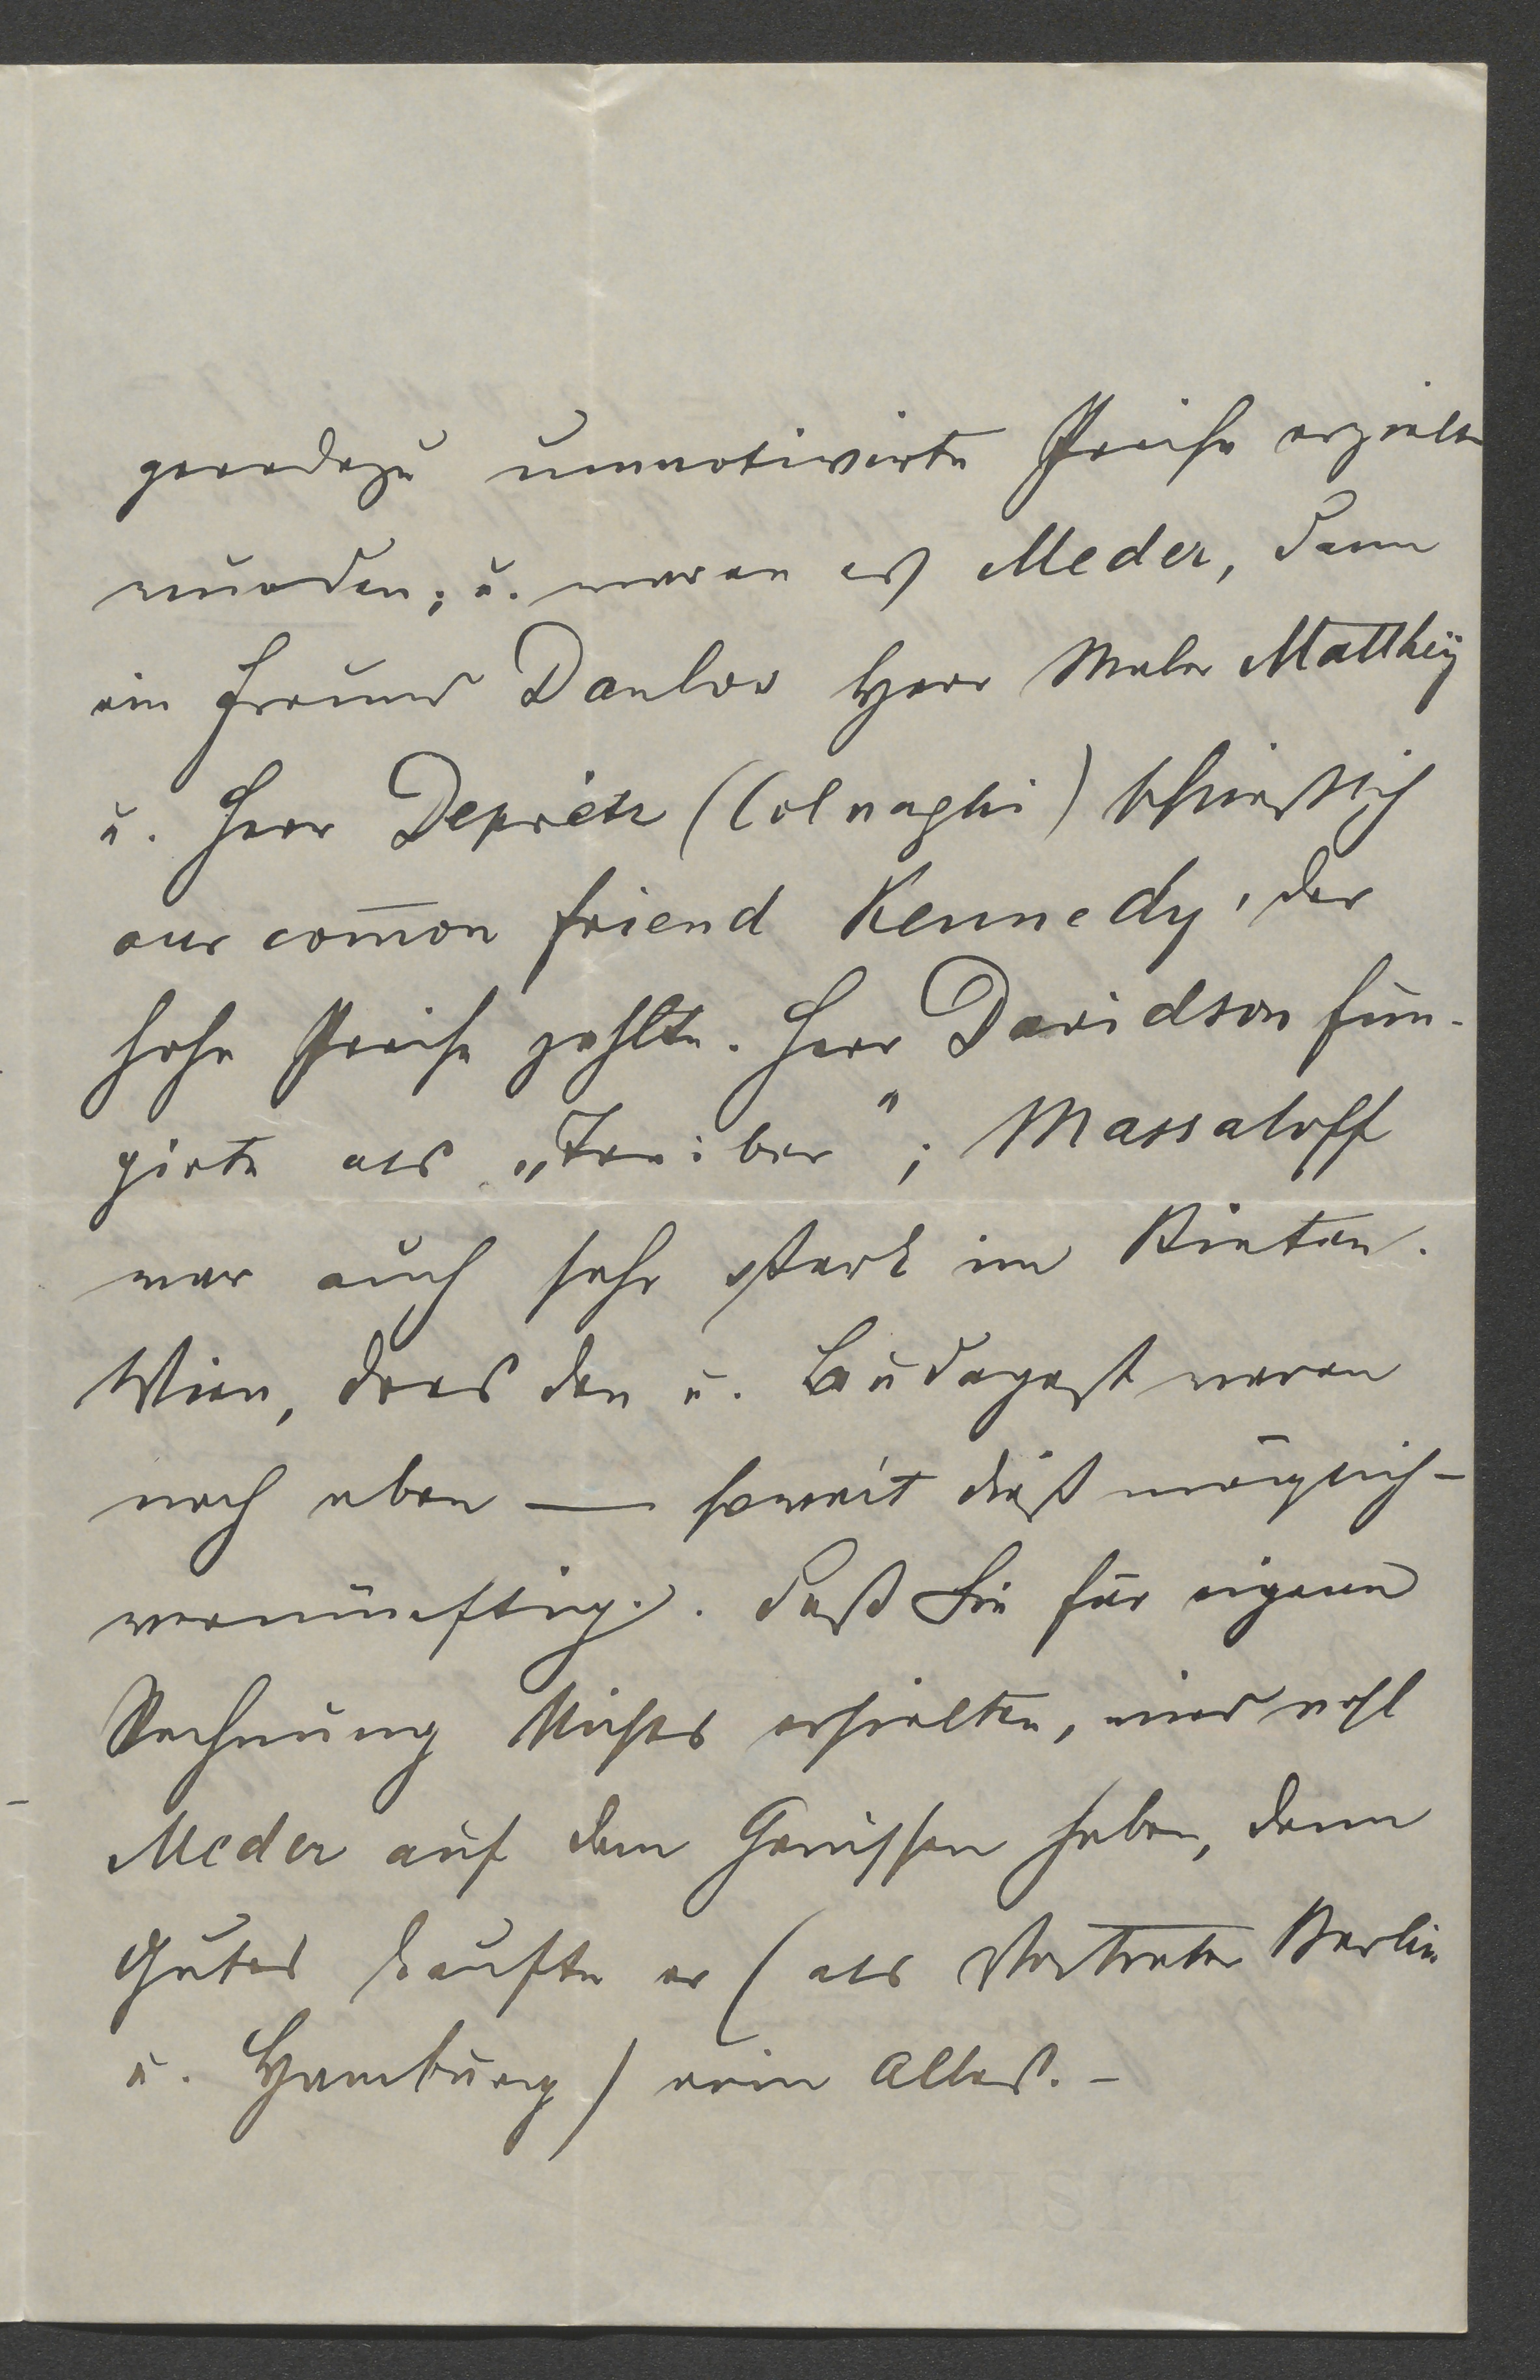 geradezu unmotivirte Preise erzielt
wurden; u. waren es Meder, dann
ein Freund Danlos Herr Maler Matthey
u. Herr Deprèz (Colnaghi) schließlich
our com̄on friend Kennedy, der
hohe Preise zahlte. Herr Davidson fun-
girte als „Treiber"; Massaloff
war auch sehr stark im Bieten.
Wien, Dresden u. Budapest waren
noch eben — soweit dieß möglich –
vernünftig. Daß Sie für eigene
Rechnung Nichts erhielten, wird wohl
Meder auf dem Gewissen haben, denn
Gutes kaufte er (als Vertreter Berlin
u. Hamburg) rein Alles. –
EXQUISITE